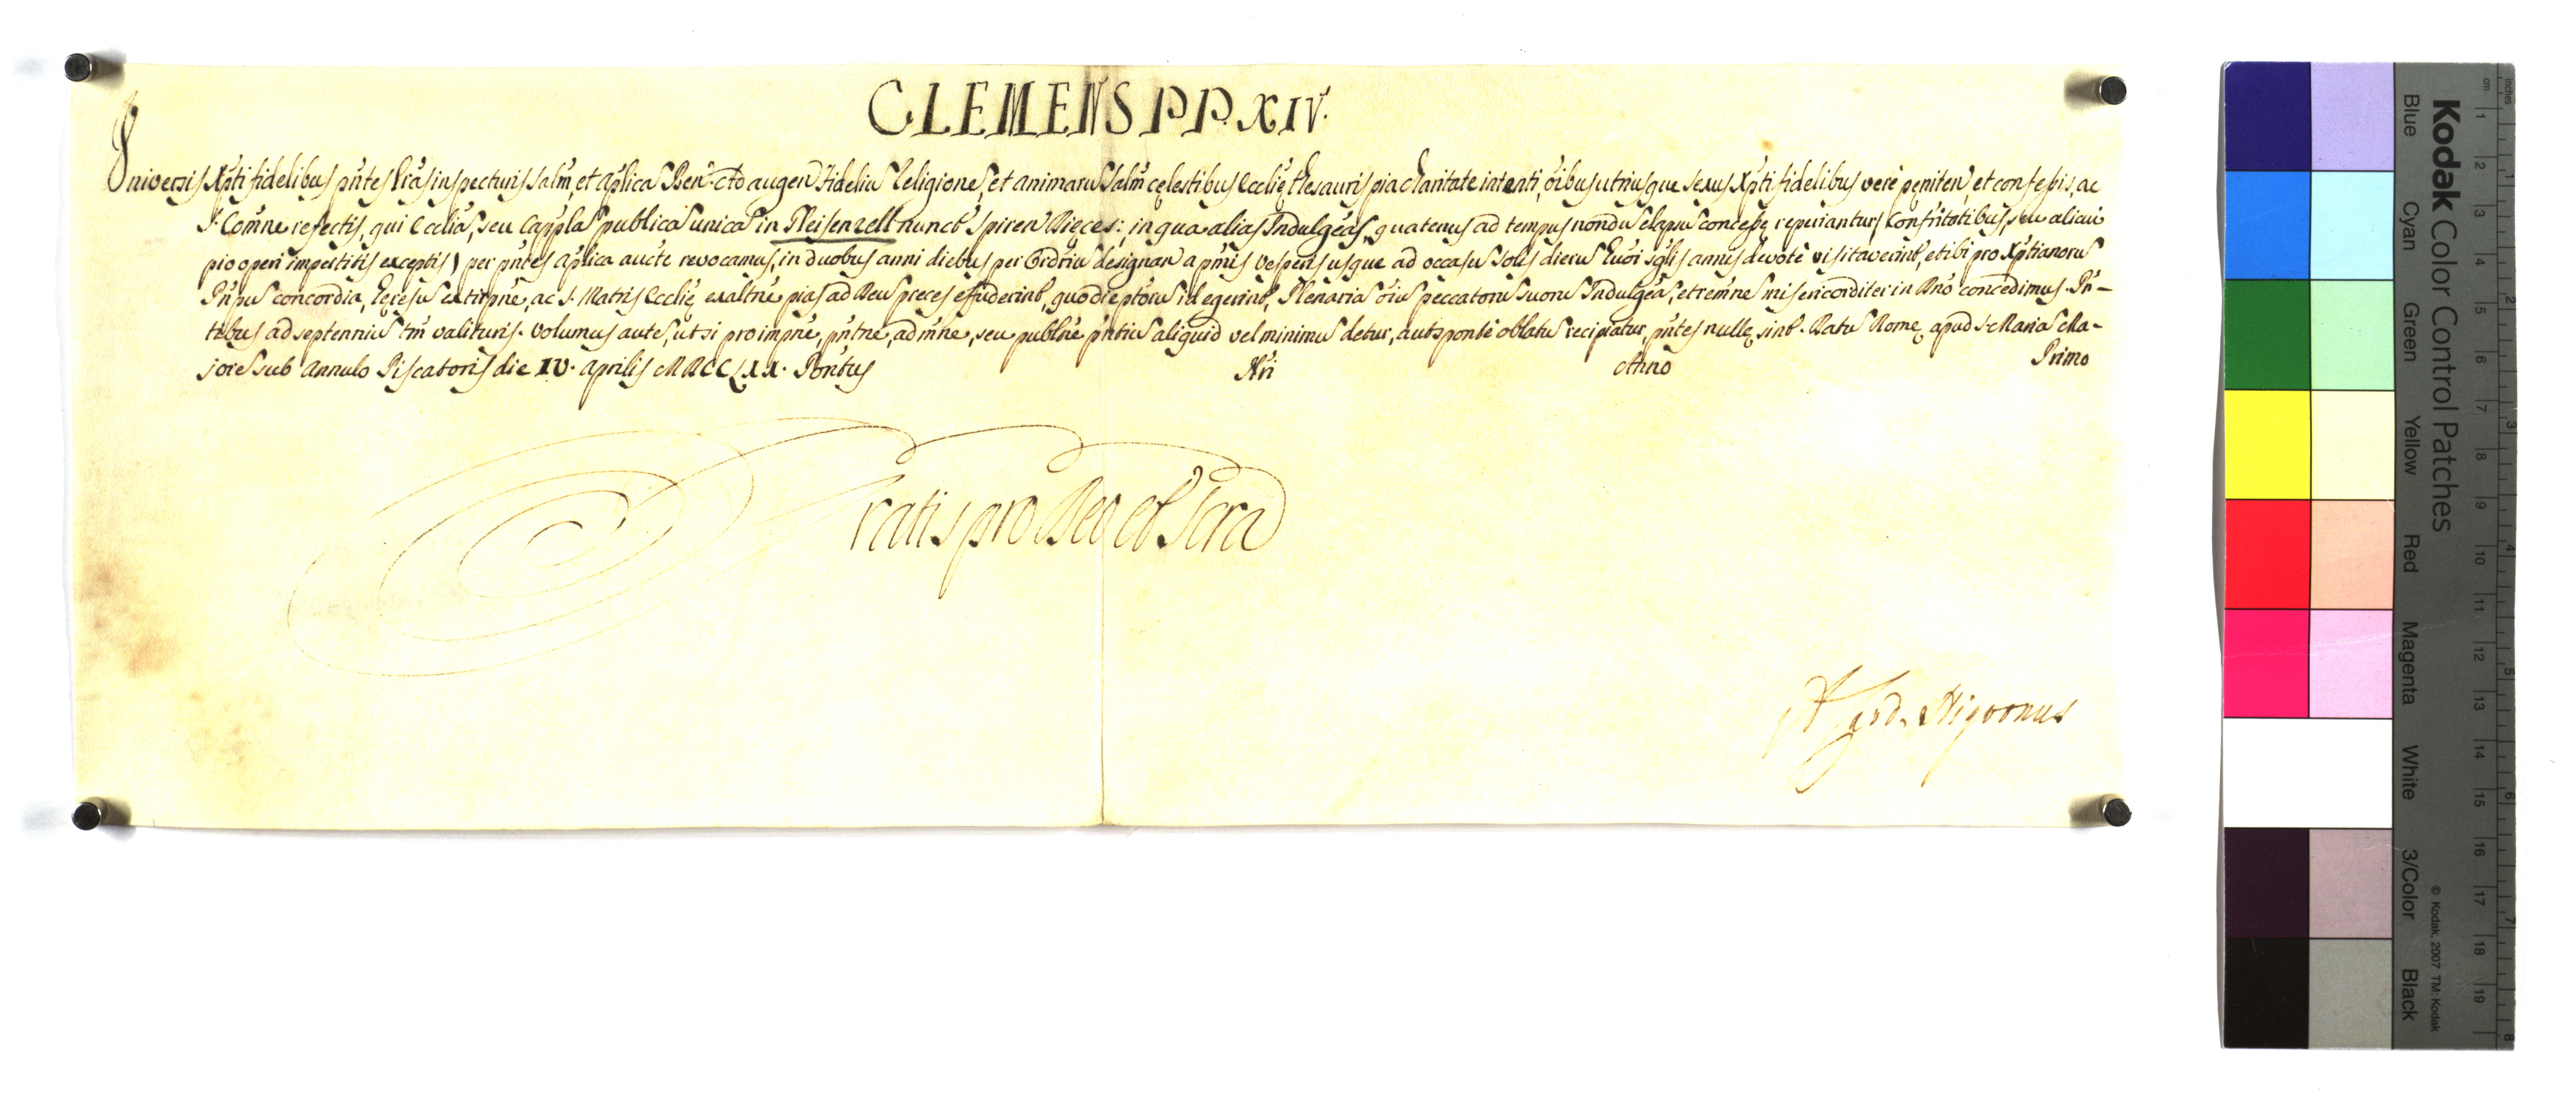 CLEMENS PP. XIV.
Universis Xpti fidelibus pñtes Lras inspecturis Salm, et Aplicã Ben. Ad augen Fideliũ Religionẽ, et animarũ Salm cęlestibus Ecclię thesauris pia charitate intenti, oibus utriusque sexus Xpti fidelibus verè pęniten et confessis, ac
S. Comne refectis, qui Ecclia, seu Cappla publica unica in Pleisenzell nuncũ Spiren Dięces: in qua alias Indulgeas, quatenus ad tempus nondũ elapsũ concessę reperiantur, Confritatibus, seu alicui
pio operi impertitis exceptis) per pñtes Aplica aucte revocamus, in duobus anni diebus per Ordriũ designan a pmis Vesperis usque ad occasũ Solis dierũ huoi sglis annis devotè visitaverint, et ibi pro Xptianorũ
Pripũ concordia, heresũ extirpne, ac S. Matris Ecclię exaltne pias ad Deũ preces effuderint, quo die ptorũ id egerint, Plenaria oiũ peccatorũ suorũ Indulgea, et remne misericorditer in Dno concedimus. Pñ-
tibus ad septenniũ tm valituris. Volumus autẽ, ut si pro impne, pntne, admne, seu publne pntiũ aliquid vel minimũ detur, aut sponte oblatũ recipiatur, pñtes nullę sint. Datũ Romę apud S. Maria Ma-
jorẽ sub Annulo Piscatoris die IV. Aprilis MDCCLXX. Pontus Nri Anno Primo
Gratis pro Deo et Scra
A. Card. Nigronus
Kodak Color Control Patches
Blue
Cyan
Green
Yellow
Red
Magenta
White
3/Color
Black
© Kodak, 2007 TM: Kodak
inches
cm
1 2 3 4 5 6 7 8 9 10 11 12 13 14 15 16 17 18 19
1 2 3 4 5 6 7 8